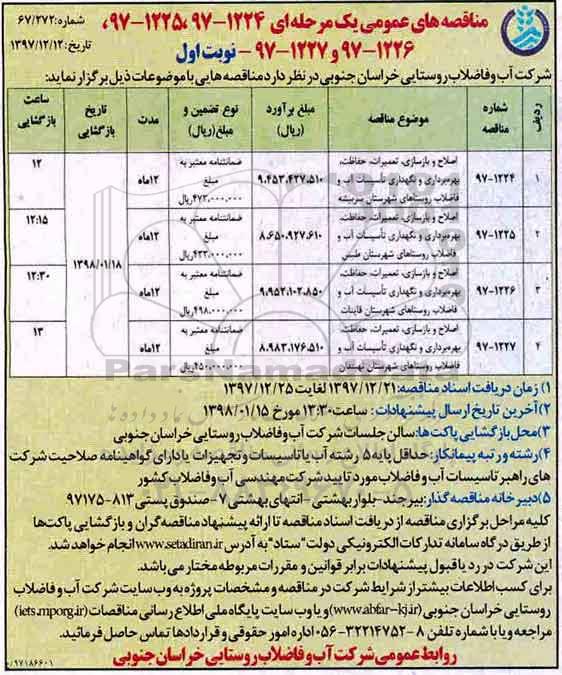 مناقصه های عمومی یک مرحله ای ۱۲۲۴-۹۷، ۱۲۲۵-۹۷،
۱۲۲۶-۹۷ و ۱۲۲۷-۹۷ - نوبت اول
شماره: ۶۷/۲۷۲
تاریخ: ۱۳۹۷/۱۲/۱۲
شرکت آب و فاضلاب روستایی خراسان جنوبی در نظر دارد مناقصه هایی با موضوعات ذیل برگزار نماید:
ردیف | شماره مناقصه | موضوع مناقصه | مبلغ برآورد (ریال) | نوع تضمین و مبلغ (ریال) | مدت | تاریخ بازگشایی | ساعت بازگشایی
۱ | ۹۷-۱۲۲۴ | اصلاح و بازسازی، تعمیرات، حفاظت، بهره‌برداری و نگهداری تأسیسات آب و فاضلاب روستاهای شهرستان سربیشه | ۹.۴۵۳.۴۲۷.۵۱۰ | ضمانتنامه معتبر به مبلغ ۴۷۳.۰۰۰.۰۰۰ریال | ۱۲ماه | ۱۳۹۸/۰۱/۱۸ | ۱۲
۲ | ۹۷-۱۲۲۵ | اصلاح و بازسازی، تعمیرات، حفاظت، بهره‌برداری و نگهداری تأسیسات آب و فاضلاب روستاهای شهرستان طبس | ۸.۶۵۰.۹۲۷.۶۱۰ | ضمانتنامه معتبر به مبلغ ۴۳۳.۰۰۰.۰۰۰ریال | ۱۲ماه | ۱۲:۱۵
۳ | ۹۷-۱۲۲۶ | اصلاح و بازسازی، تعمیرات، حفاظت، بهره‌برداری و نگهداری تأسیسات آب و فاضلاب روستاهای شهرستان قاینات | ۹.۹۵۲.۱۰۲.۸۵۰ | ضمانتنامه معتبر به مبلغ ۴۹۸.۰۰۰.۰۰۰ریال | ۱۲ماه | ۱۲:۳۰
۴ | ۹۷-۱۲۲۷ | اصلاح و بازسازی، تعمیرات، حفاظت، بهره‌برداری و نگهداری تأسیسات آب و فاضلاب روستاهای شهرستان نهبندان | ۸.۹۸۳.۱۷۶.۵۱۰ | ضمانتنامه معتبر به مبلغ ۴۵۰.۰۰۰.۰۰۰ریال | ۱۲ماه | ۱۳
۱) زمان دریافت اسناد مناقصه: ۱۳۹۷/۱۲/۲۱ لغایت ۱۳۹۷/۱۲/۲۵
۲) آخرین تاریخ ارسال پیشنهادات: ساعت ۱۳:۳۰ مورخ ۱۳۹۸/۰۱/۱۵
۳) محل بازگشایی پاکت ها: سالن جلسات شرکت آب و فاضلاب روستایی خراسان جنوبی
۴) رشته و رتبه پیمانکار: حداقل پایه ۵ رشته آب یا تاسیسات و تجهیزات یا دارای گواهینامه صلاحیت شرکت
های راهبر تاسیسات آب و فاضلاب مورد تایید شرکت مهندسی آب و فاضلاب کشور
۵) دبیرخانه مناقصه گذار: بیرجند- بلوار بهشتی- انتهای بهشتی ۷- صندوق پستی ۸۱۳-۹۷۱۷۵
کلیه مراحل برگزاری مناقصه از دریافت اسناد مناقصه تا ارائه پیشنهاد مناقصه گران و بازگشایی پاکت ها
از طریق درگاه سامانه تدارکات الکترونیکی دولت "ستاد" به آدرس www.setadiran.ir انجام خواهد شد.
این شرکت در رد یا قبول پیشنهادات برابر قوانین و مقررات مربوطه مختار می باشد.
برای کسب اطلاعات بیشتر از شرایط شرکت در مناقصه و مشخصات پروژه به وب سایت شرکت آب و فاضلاب
روستایی خراسان جنوبی (www.abfar-kj.ir) و یا وب سایت پایگاه ملی اطلاع رسانی مناقصات (iets.mporg.ir)
مراجعه و یا با شماره تلفن ۸-۳۲۲۱۴۷۵۲-۰۵۶ اداره امور حقوقی و قراردادها تماس حاصل فرمائید.
روابط عمومی شرکت آب و فاضلاب روستایی خراسان جنوبی
۹۷۱۸۶۶۰۱/